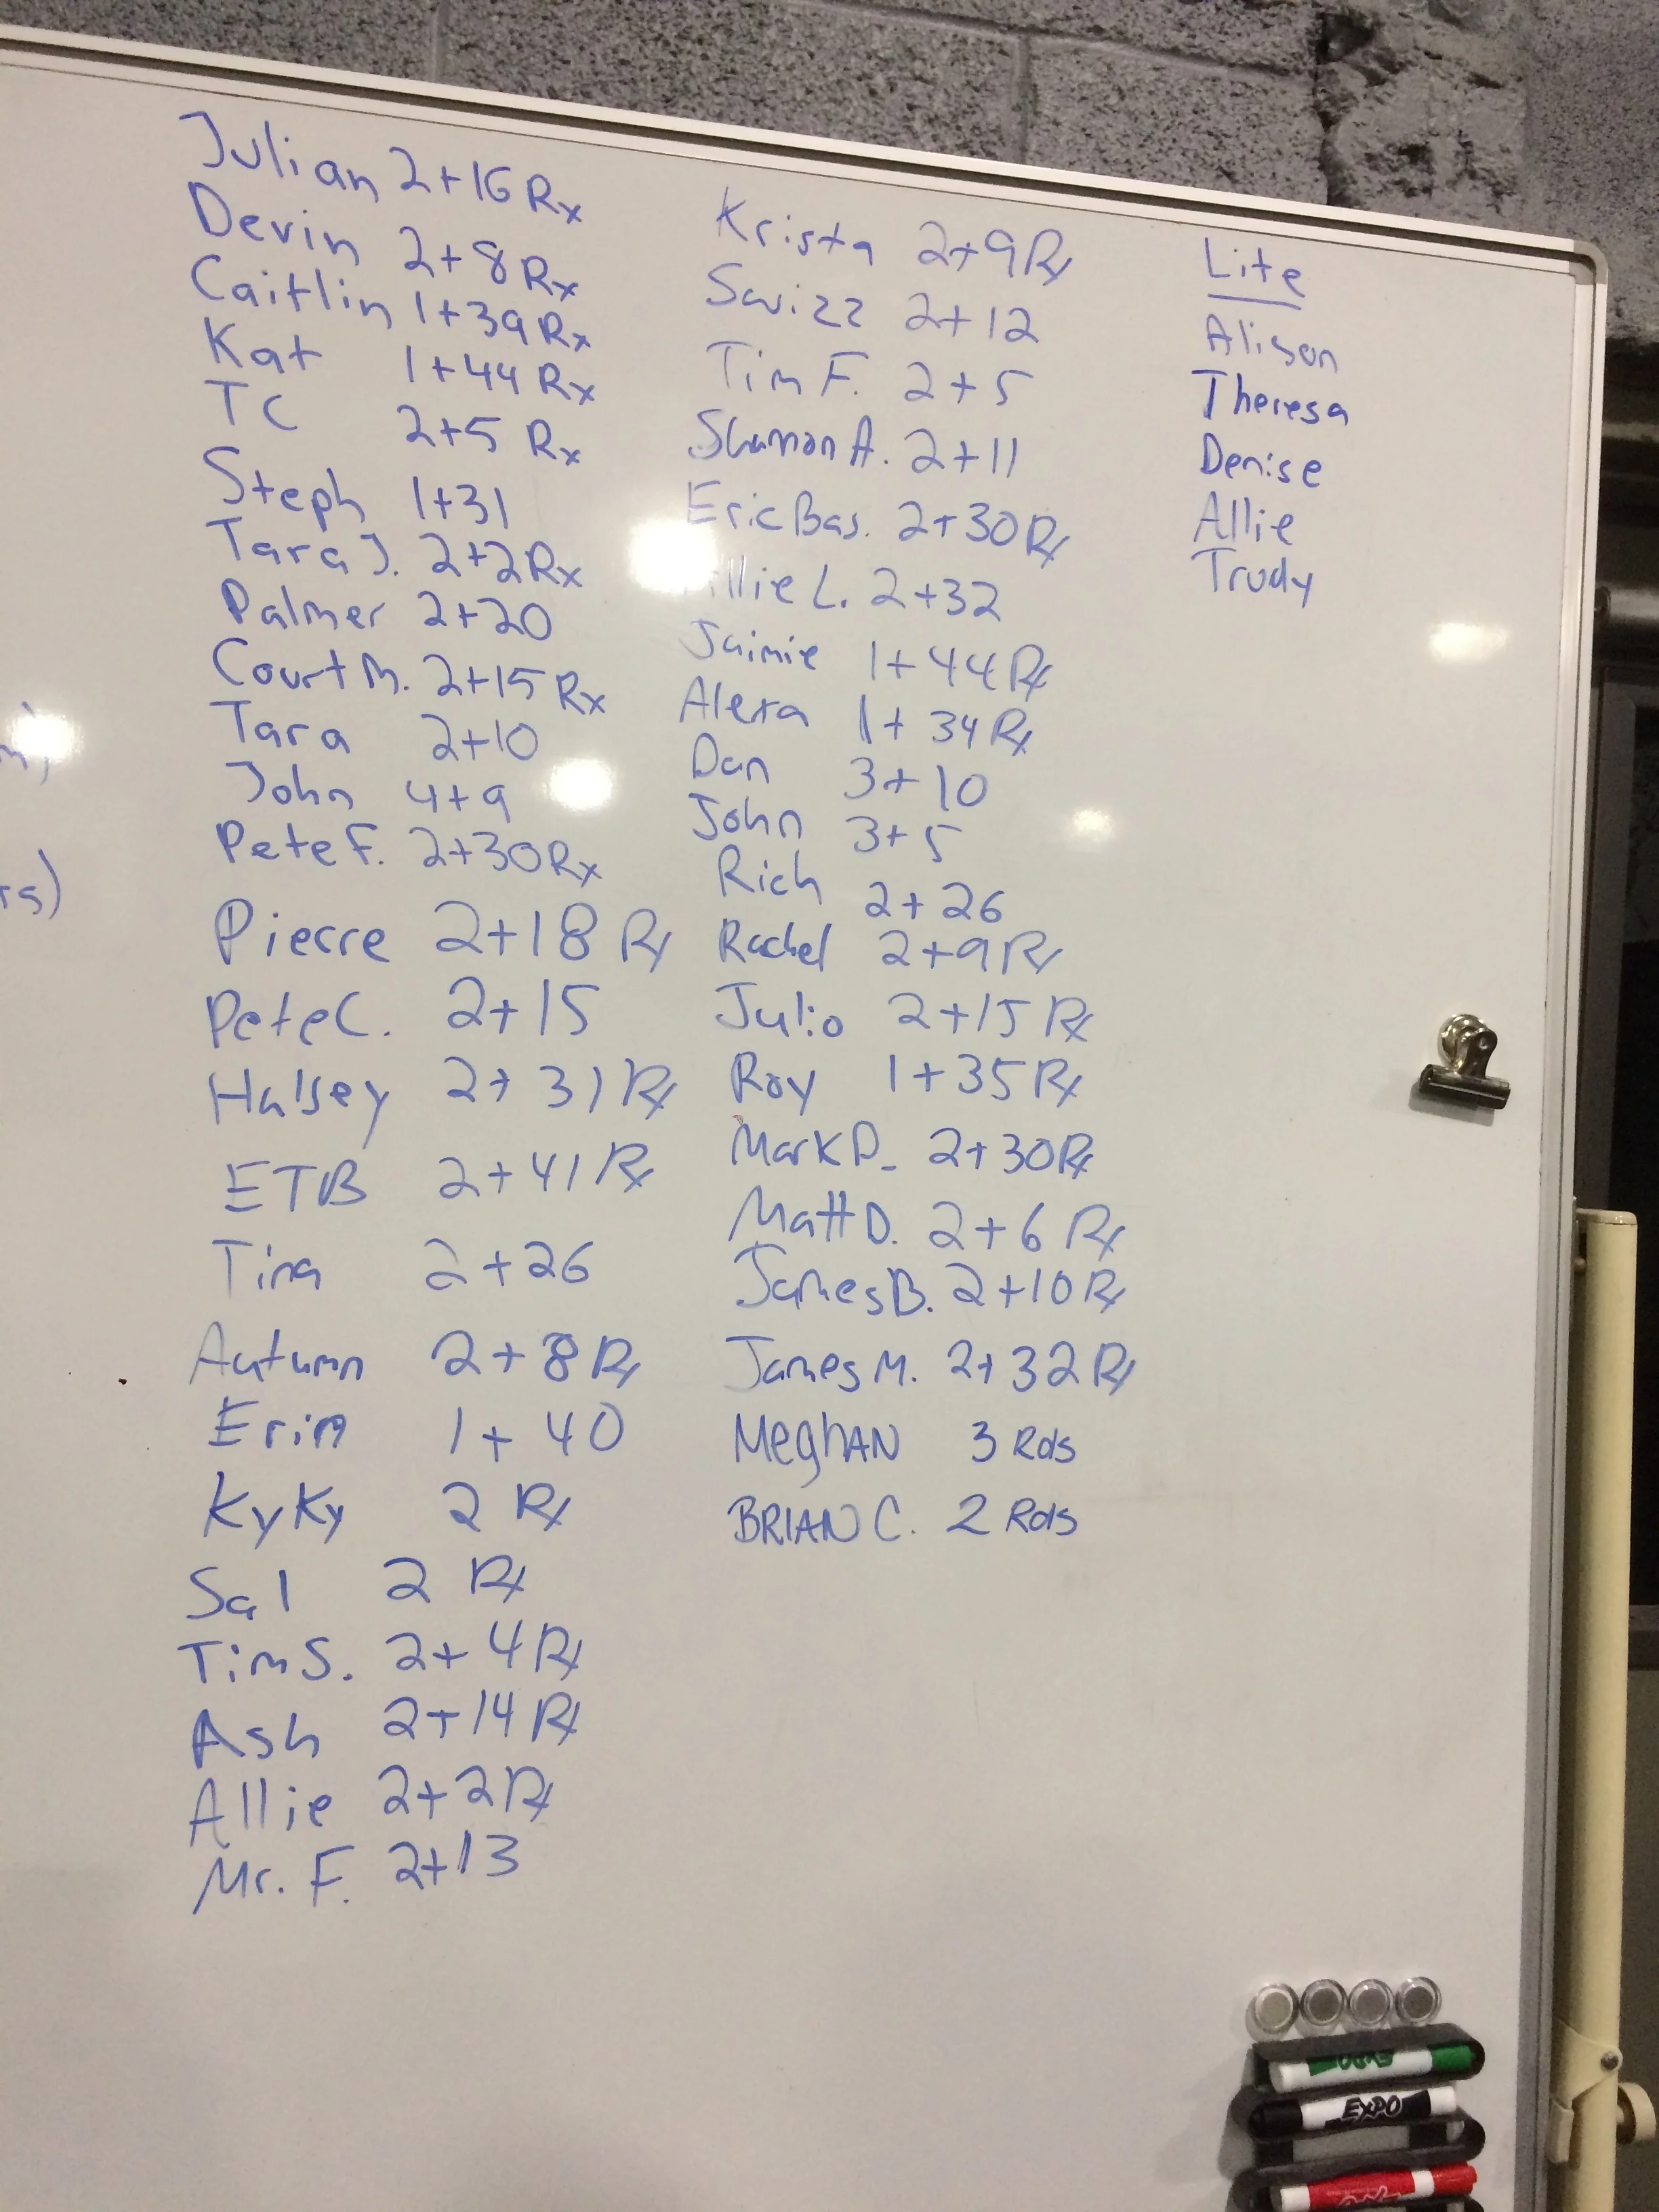 Julian 2+16 Rx
Devin 2+8 Rx
Caitlin 1+39 Rx
Kat 1+44 Rx
TC 2+5 Rx
Steph 1+31
Tara J. 2+2 Rx
Palmer 2+20
Court M. 2+15 Rx
Tara 2+10
John 4+9
Pete F. 2+30 Rx
Pierre 2+18 Rx
Pete C. 2+15
Halsey 2+31 Rx
ETB 2+41 Rx
Tina 2+26
Autumn 2+8 Rx
Erin 1+40
KyKy 2 Rx
Sal 2 Rx
Tim S. 2+4 Rx
Ash 2+14 Rx
Allie 2+2 Rx
Mr. F. 2+13
Krista 2+9 Rx
Swizz 2+12
Tim F. 2+5
Shannon A. 2+11
Eric Bas. 2+30 Rx
L. 2+32
Jaimie 1+44 Rx
Alexa 1+34 Rx
Dan 3+10
John 3+5
Rich 2+26
Rachel 2+9 Rx
Julio 2+15 Rx
Roy 1+35 Rx
Mark D. 2+30 Rx
Matt D. 2+6 Rx
James B. 2+10 Rx
James M. 2+32 Rx
MeghAN 3 Rds
BRIAN C. 2 Rds
Lite
Alison
Theresa
Denise
Allie
Trudy
EXPO